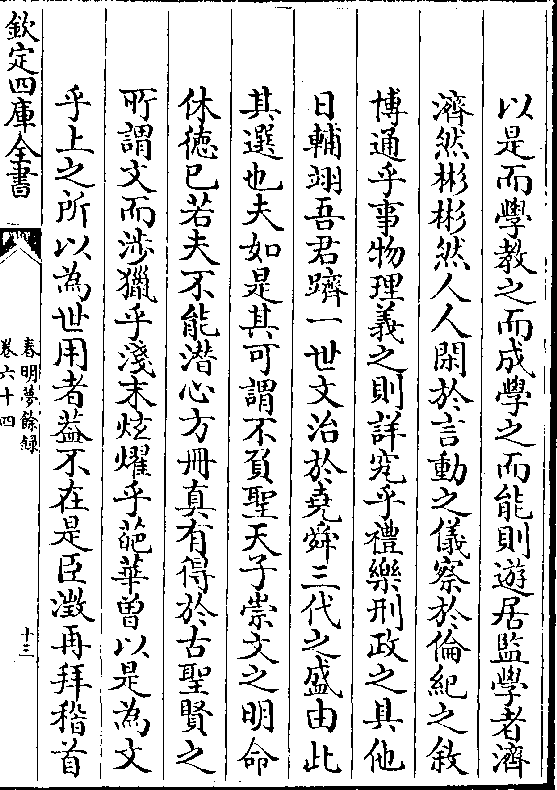 以是而學教之而成學之而能則遊居監學者濟
濟然彬彬然人人閑於言動之儀察於倫紀之敘
博通乎事物理義之則詳究乎禮樂刑政之具他
日輔翊吾君躋一世文治於堯舜三代之盛由此
其選也夫如是其可謂不負聖天子崇文之明命
休德已若夫不能潜心方冊真有得於古聖賢之
所謂文而涉獵乎淺末炫燿乎葩華曽以是為文
乎上之所以為世用者葢不在是臣澂再拜稽首
欽定四庫全書
春明夢餘録
卷六十四
十三